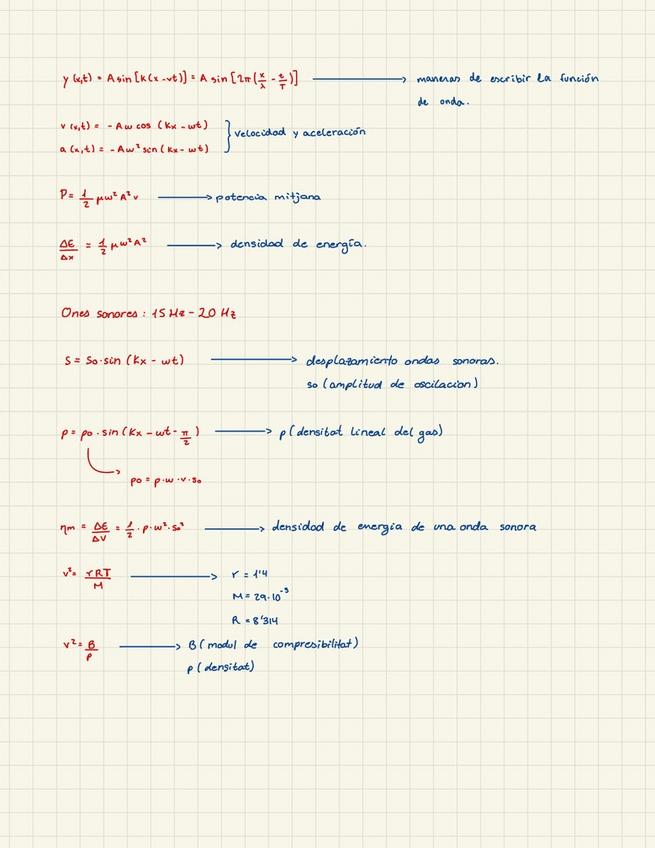 y(x,t) = A sin [K(x-vt)] = A sin [2π(x/λ - t/T)] → maneras de escribir la función
de onda.
v(x,t) = -Aω cos (Kx - ωt)
a(x,t) = -Aω² sin (Kx - ωt) } velocidad y aceleración
P = 1/2 μω²A²v → potencia mitjana
ΔE/Δx = 1/2 μω²A² → densidad de energía.
Ones sonores : 15 Hz - 20 Hz
S = So·sin (Kx - ωt) → desplazamiento ondas sonoras.
so (amplitud de oscilacion)
p = po·sin (Kx - ωt - π/2) → ρ (densitat lineal del gas)
po = ρ·ω·v·so
ηm = ΔE/ΔV = 1/2·ρ·ω²·so² → densidad de energia de una onda sonora
v² = γRT/M → γ = 1'4
M = 29·10⁻³
R = 8'314
v² = B/ρ → B (modul de compresibilitat)
ρ (densitat)